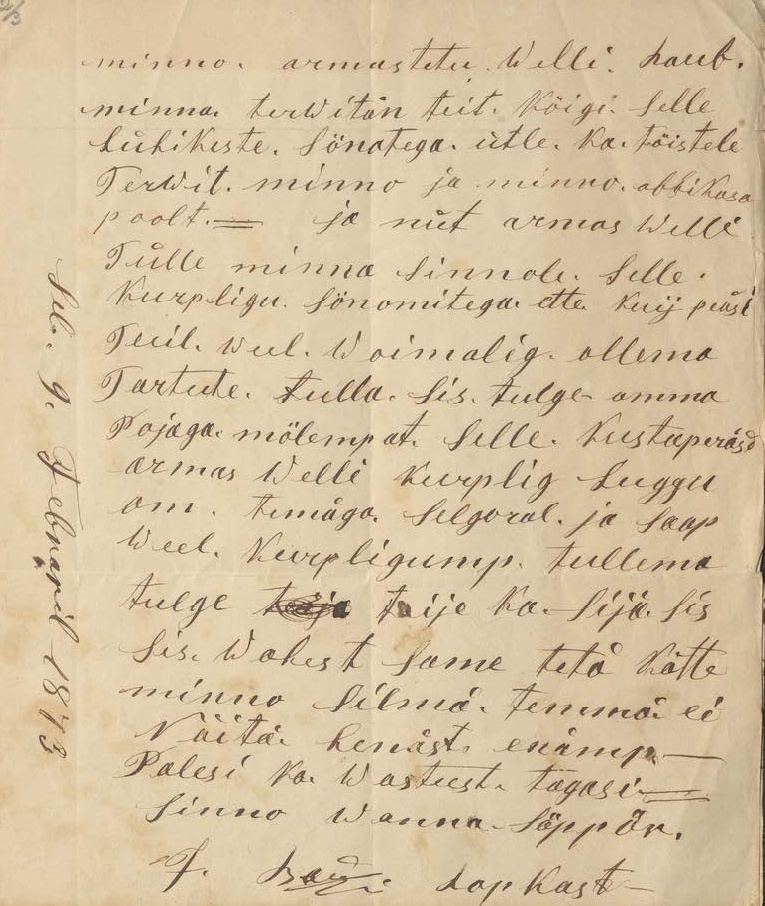 minno. armastetu. Welli. Laub.
minna. terwitän teit. Köigi. Selle
Lühikeste. Sönatega. ütle. ka. töistele
Terwit. minno ja minno. abbikasa
poolt.= ja nüt armas Welli
Tulle minna Sinnole. Selle.
Kurpligu. Sönomitega. ette kuij peasi
Teil. weel. Woimalig. ollema
Tartute. tulla. Sis. tulge omma
Pojaga. mölempat. Selle. Kustaperäsd
armas Welli Kurplig Luggu
om. temäga. Selgoral. ja Saap
Weel. Kurpligump. tullema
tulge teije ka. Sijä. Sis
Sis. Wahest Same tetä Kätte
minno Silmä. temmä. ei
Näitä. henäst. enämp.—
Palesi ka. Wastust. tagasi.=
Sinno Wanna. Söppär.
J. Lopkast—
Sel. 9. Februaril 1873